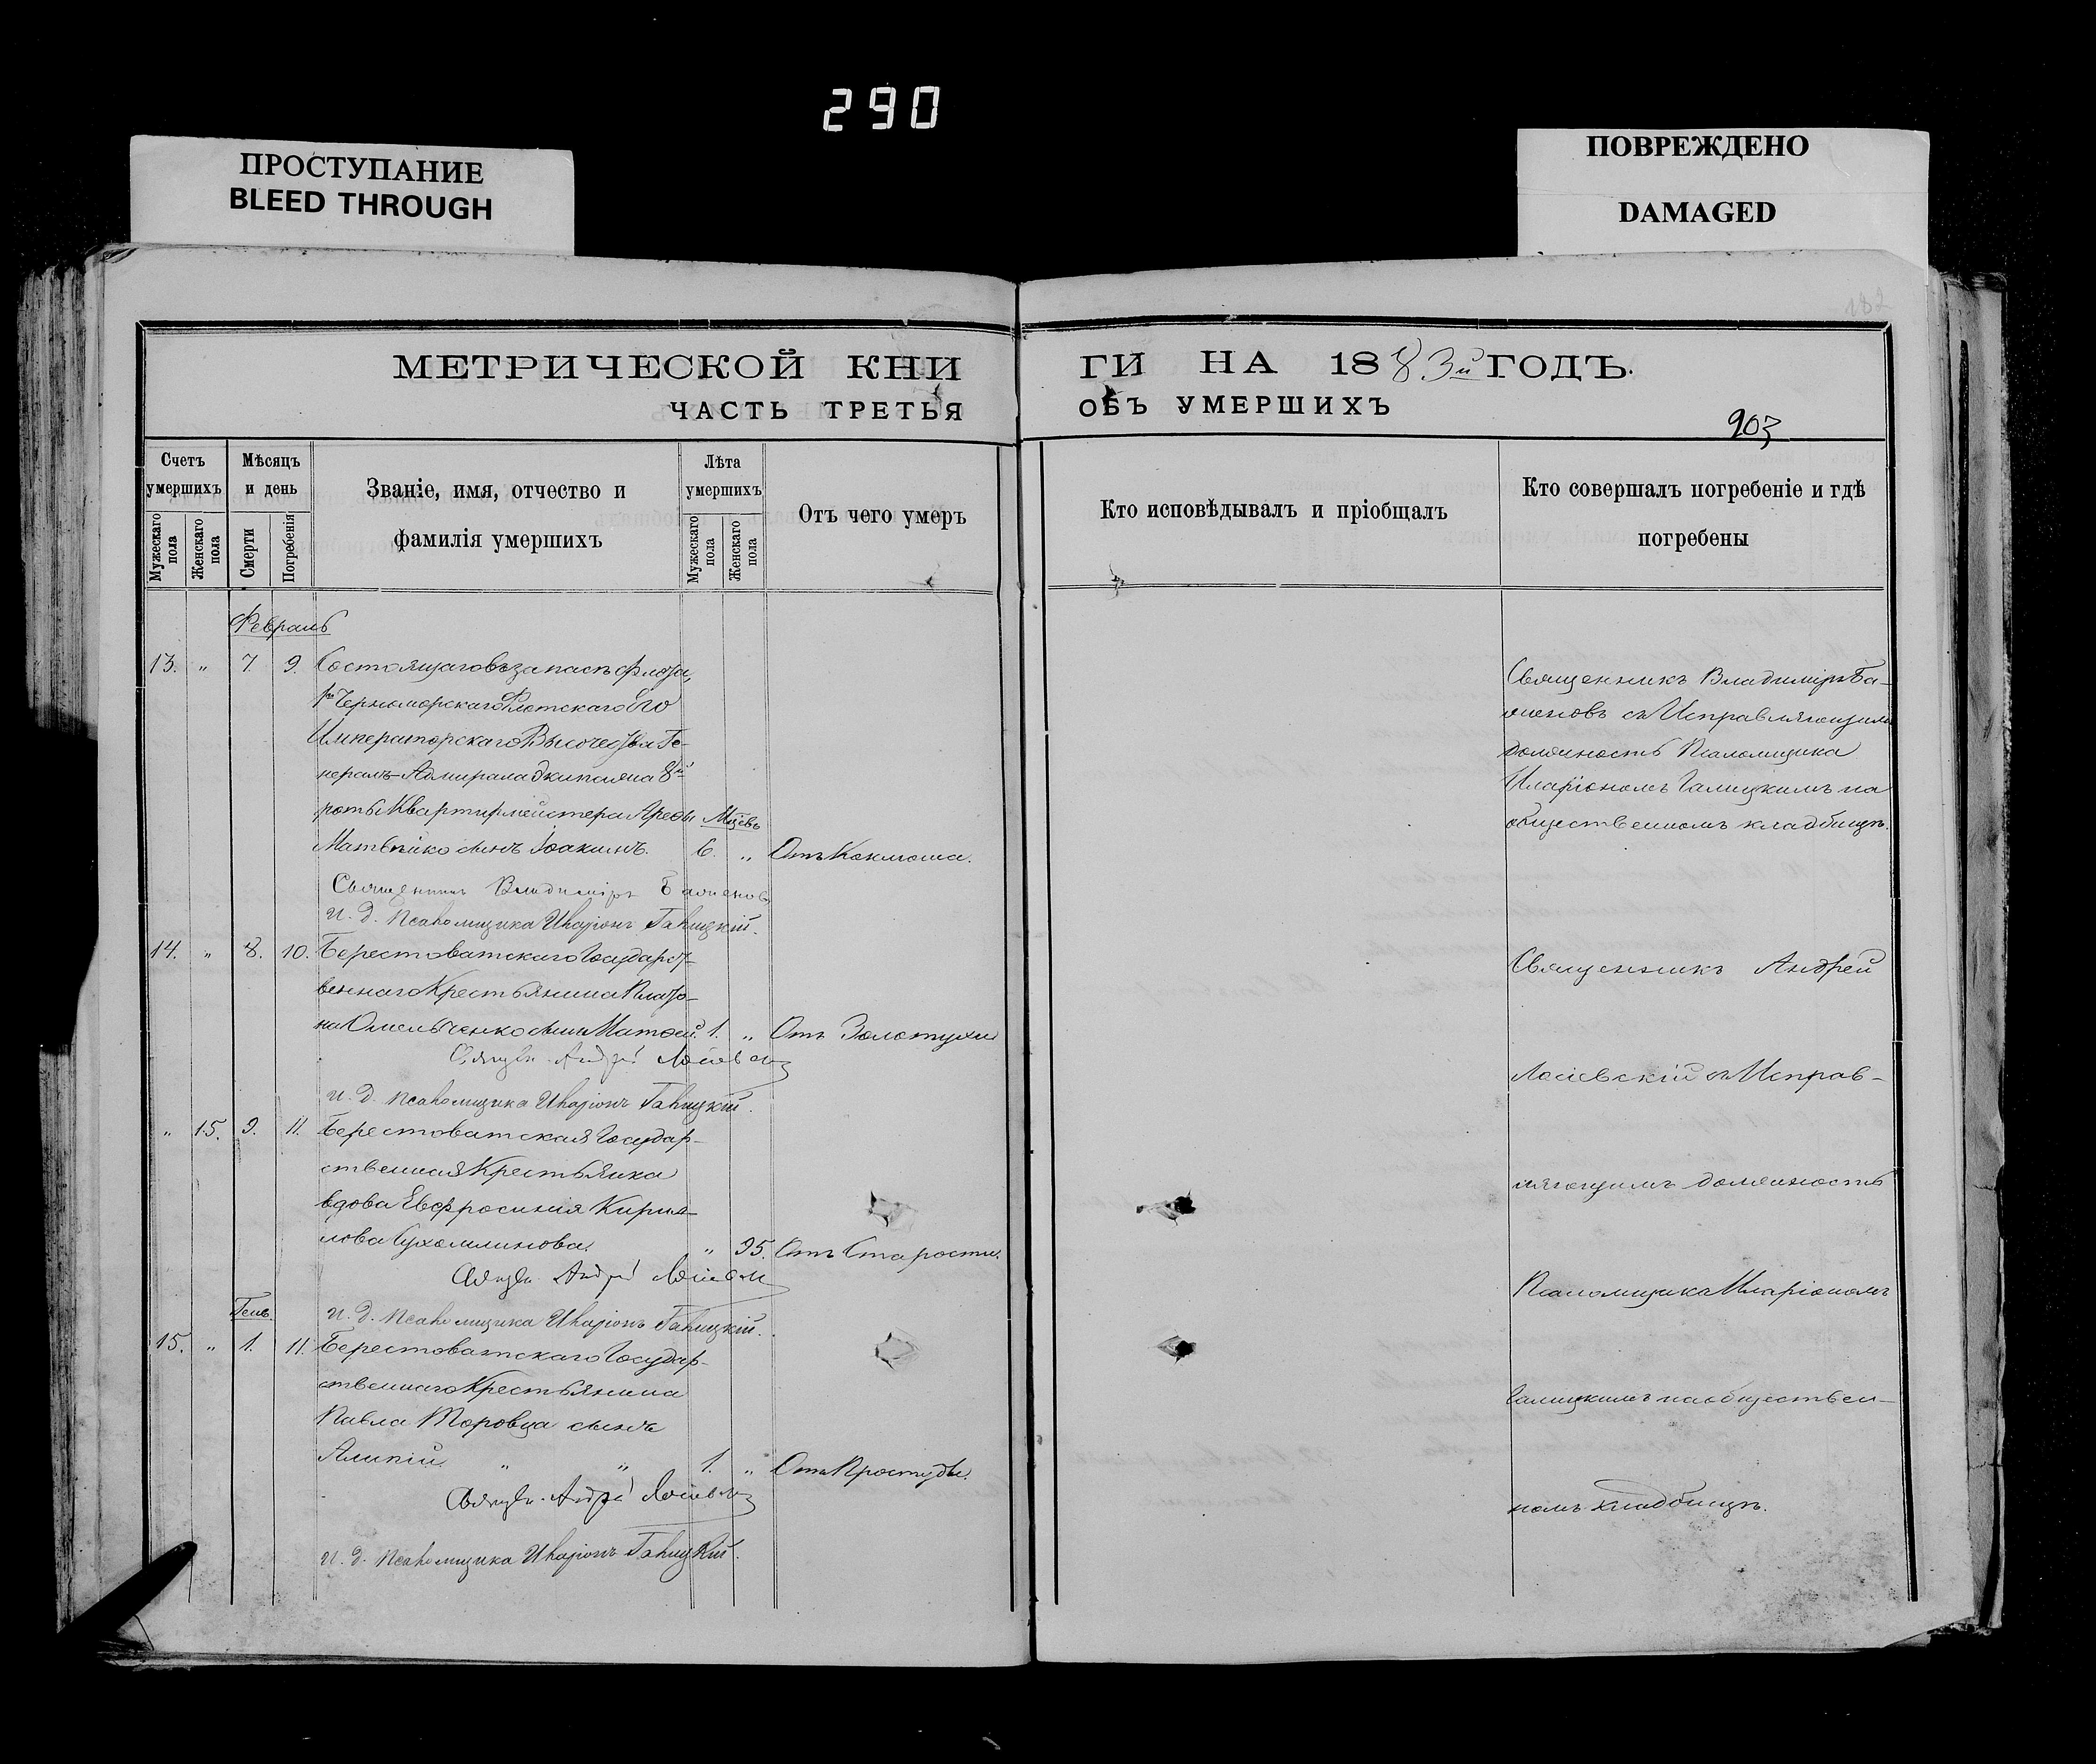 290
ПРОСТУПАНИЕ
BLEED THROUGH
ПОВРЕЖДЕНО
DAMAGED
182
МЕТРИЧЕСКОЙ КНИ
ЧАСТЬ ТРЕТЬЯ
Счетъ умершихъ
Мужескаго пола
Женскаго пола
Мѣсяцъ и день
Смерти
Погребенія
Званіе, имя, отчество и
фамилія умершихъ
Лѣта умершихъ
Мужескаго пола
Женскаго пола
Отъ чего умеръ
Февраль
13. " 7. 9. Состоящаго въ запасѣ флота,
1го Черноморскаго Флотскаго Его
Императорскаго Высочества Ге-
нералъ-Адмирала Экипажа 8й
роты Квартирмейстера Арефы Мцевъ
Матвѣйко сынъ Іоакимъ. 6. " Отъ Коклюша.
Священникъ Владиміръ Баженовъ
И. д. Псаломщика Иларіонъ Галицкій.
14. " 8. 10. Берестоватскаго Государст-
веннаго Крестьянина Плато-
на Омельченко сынъ Матѳей. 1. " Отъ Золотухи
Священ. Андрей
И. д. Псаломщика Иларіонъ Галицкій.
" 15. 9. 11. Берестоватская Государ-
ственная Крестьянка
вдова Евфросинія Кирил-
лова Сухомлинова. " 95. Отъ Старости.
Священ. Андрей
Генв.
И. д. Псаломщика Иларіонъ Галицкій.
15. " 1. 11. Берестоватскаго Государ-
ственнаго Крестьянина
Павла Торовца сынъ
Алипій " " 1. " Отъ Простуды.
Священ. Андрей
И. д. Псаломщика Иларіонъ Галицкій.
ГИ НА 1883й ГОДЪ.
ОБЪ УМЕРШИХЪ
903
Кто исповѣдывалъ и пріобщалъ
Кто совершалъ погребеніе и гдѣ
погребены
Священникъ Владиміръ Ба-
женовъ съ Исправляющимъ
должность Псаломщика
Иларіономъ Галицкимъ на
общественномъ кладбищѣ.
Священникъ Андрей
съ Исправ-
ляющимъ должность
Псаломщика Иларіономъ
Галицкимъ на обществен-
номъ кладбищѣ.